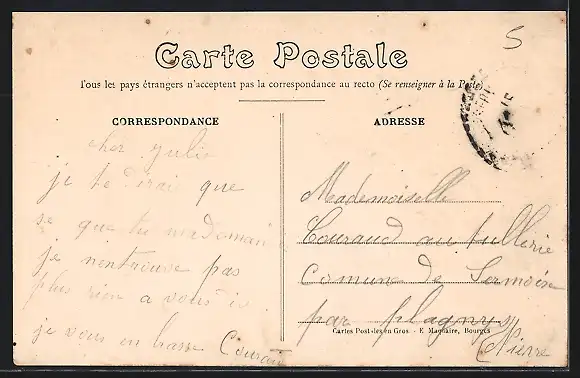 5
Carte Postale
Tous les pays étrangers n'acceptent pas la correspondance au recto (Se renseigner à la Poste)
CORRESPONDANCE
ADRESSE
cher Julie
je te dirai que
se que tu
je nentrouve pas
plus rien a vous
je vous en basse Couraud
Mademoiselle
Couraud au tullerie
Comune de Sermoise
par plagny
Nièvre
Cartes Postales en Gros - E. Maquaire, Bourges